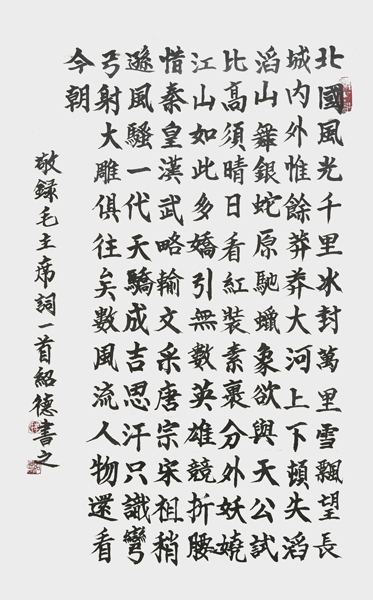 北國風光千里氷封萬里雪飄望長
城内外惟餘莽莽大河上下頓失滔
滔山舞銀蛇原馳蠟象欲與天公試
比高須晴日看紅裝素裹分外妖嬈
江山如此多嬌引無數英雄競折腰
惜秦皇漢武略輸文采唐宗宋祖稍
遜風騷一代天驕成吉思汗只識彎
弓射大雕俱往矣數風流人物還看
今朝
敬録毛主席詞一首紹德書之